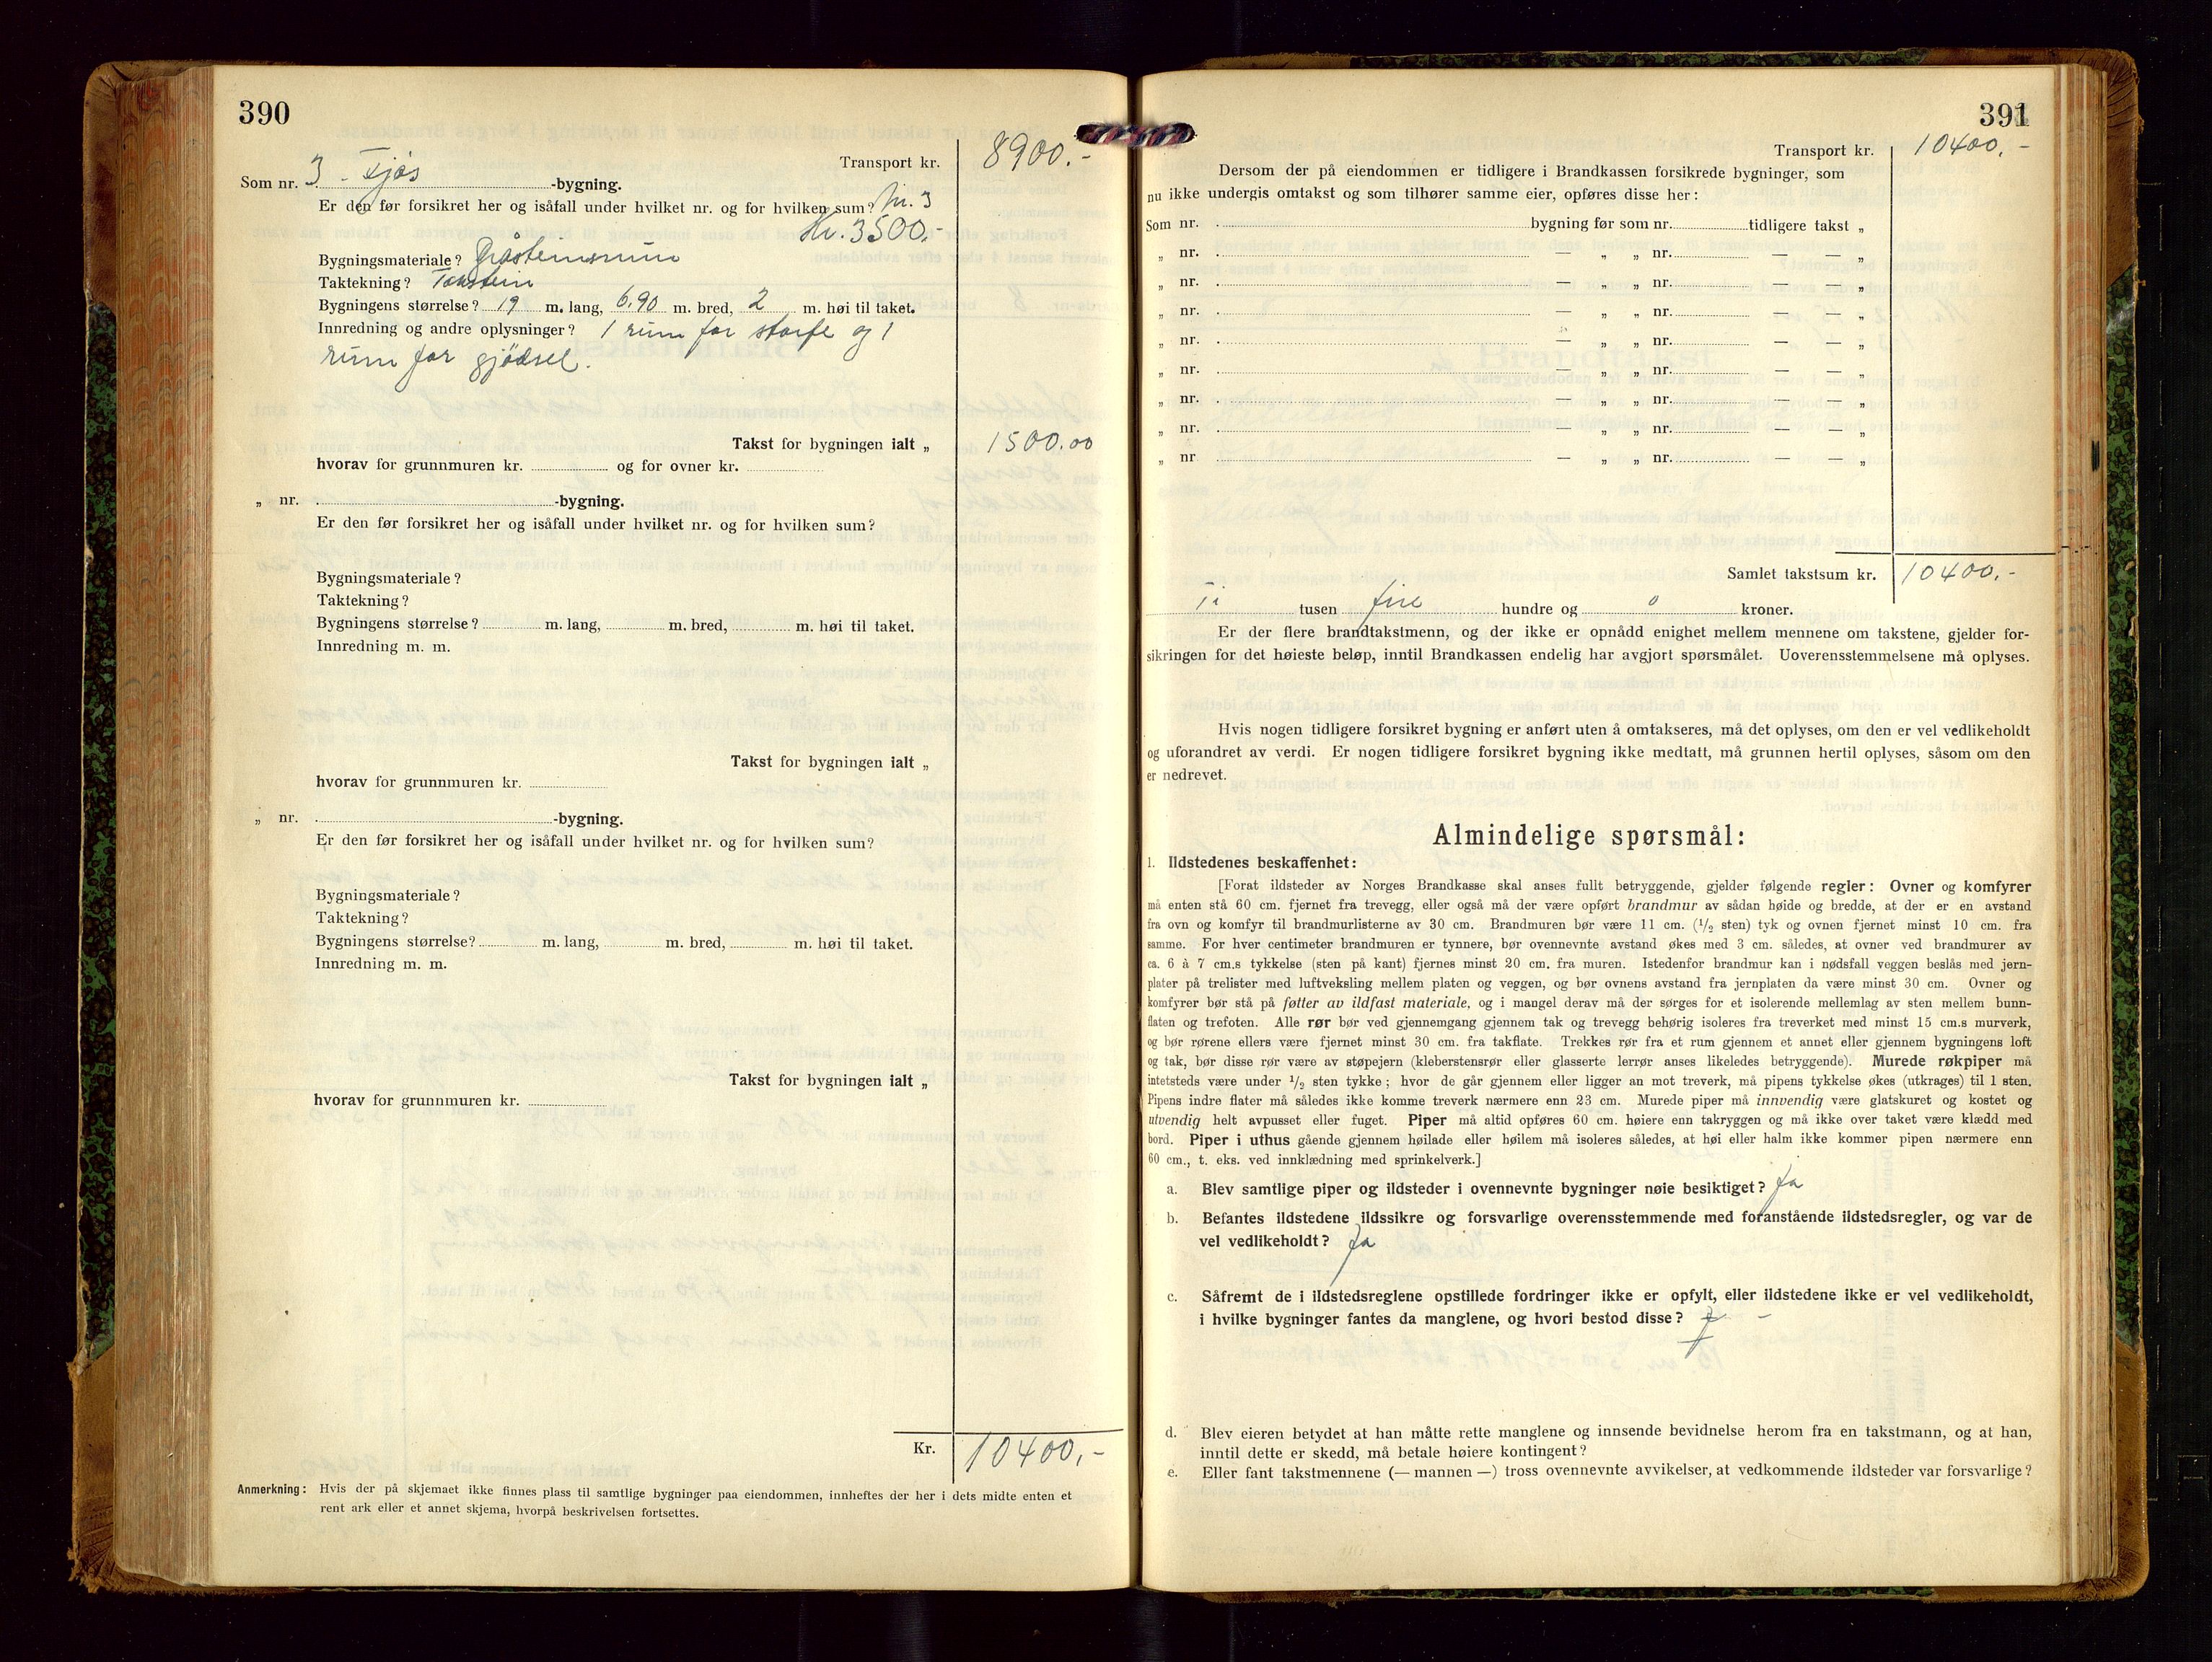 390
Transport kr. 8900.-
Som nr. 3 - Fjøs -bygning.
Er den før forsikret her og isåfall under hvilket nr. og for hvilken sum? Nr. 3
Kr. 3500.-
Bygningsmateriale? Gråsteinsmur
Taktekning? Takstein
Bygningens størrelse? 19 m. lang, 6.90 m. bred, 2 m. høi til taket.
Innredning og andre oplysninger? 1 rum for storfe og 1
rum for gjødsel.
Takst for bygningen ialt „ 1500.00
hvorav for grunnmuren kr. og for ovner kr.
„ nr. -bygning.
Er den før forsikret her og isåfall under hvilket nr. og for hvilken sum?
Bygningsmateriale?
Taktekning?
Bygningens størrelse? m. lang, m. bred, m. høi til taket.
Innredning m. m.
Takst for bygningen ialt „
hvorav for grunnmuren kr.
„ nr. -bygning.
Er den før forsikret her og isåfall under hvilket nr. og for hvilken sum?
Bygningsmateriale?
Taktekning?
Bygningens størrelse? m. lang, m. bred, m. høi til taket.
Innredning m. m.
Takst for bygningen ialt „
hvorav for grunnmuren kr.
Kr. 10400,-
Anmerkning: Hvis der på skjemaet ikke finnes plass til samtlige bygninger paa eiendommen, innheftes der her i dets midte enten et
rent ark eller et annet skjema, hvorpå beskrivelsen fortsettes.
391
Transport kr. 10400.-
Dersom der på eiendommen er tidligere i Brandkassen forsikrede bygninger, som
nu ikke undergis omtakst og som tilhører samme eier, opføres disse her:
Som nr. bygning før som nr. tidligere takst „
„ nr. — „ „ nr. — — „
„ nr. — „ „ nr. — — „
„ nr. — „ „ nr. — — „
„ nr. — „ „ nr. — — „
„ nr. — „ „ nr. — — „
„ nr. — „ „ nr. — — „
„ nr. — „ „ nr. — — „
„ nr — „ „ nr. — — „
Samlet takstsum kr. 10400.-
Ti tusen fire hundre og o kroner.
Er der flere brandtakstmenn, og der ikke er opnådd enighet mellem mennene om takstene, gjelder for-
sikringen for det høieste beløp, inntil Brandkassen endelig har avgjort spørsmålet. Uoverensstemmelsene må oplyses.
Hvis nogen tidligere forsikret bygning er anført uten å omtakseres, må det oplyses, om den er vel vedlikeholdt
og uforandret av verdi. Er nogen tidligere forsikret bygning ikke medtatt, må grunnen hertil oplyses, såsom om den
er nedrevet.
Almindelige spørsmål:
1. Ildstedenes beskaffenhet:
[Forat ildsteder av Norges Brandkasse skal anses fullt betryggende, gjelder følgende regler: Ovner og komfyrer
må enten stå 60 cm. fjernet fra trevegg, eller også må der være opført brandmur av sådan høide og bredde, at der er en avstand
fra ovn og komfyr til brandmurlisterne av 30 cm. Brandmuren bør være 11 cm. (1/2 sten) tyk og ovnen fjernet minst 10 cm. fra
samme. For hver centimeter brandmuren er tynnere, bør ovennevnte avstand økes med 3 cm. således, at ovner ved brandmurer av
ca. 6 à 7 cm.s tykkelse (sten på kant) fjernes minst 20 cm. fra muren. Istedenfor brandmur kan i nødsfall veggen beslås med jern-
plater på trelister med luftveksling mellem platen og veggen, og bør ovnens avstand fra jernplaten da være minst 30 cm. Ovner og
komfyrer bør stå på føtter av ildfast materiale, og i mangel derav må der sørges for et isolerende mellemlag av sten mellem bunn-
flaten og trefoten. Alle rør bør ved gjennemgang gjennem tak og trevegg behørig isoleres fra treverket med minst 15 cm.s murverk,
og bør rørene ellers være fjernet minst 30 cm. fra takflate. Trekkes rør fra et rum gjennem et annet eller gjennem bygningens loft
og tak, bør disse rør være av støpejern (kleberstensrør eller glasserte lerrør anses likeledes betryggende). Murede røkpiper må
intetsteds være under 1/2 sten tykke; hvor de går gjennem eller ligger an mot treverk, må pipens tykkelse økes (utkrages) til 1 sten.
Pipens indre flater må således ikke komme treverk nærmere enn 23 cm. Murede piper må innvendig være glatskuret og kostet og
utvendig helt avpusset eller fuget. Piper må altid opføres 60 cm. høiere enn takryggen og må ikke over taket være klædd med
bord. Piper i uthus gående gjennem høilade eller høilem må isoleres således, at høi eller halm ikke kommer pipen nærmere enn
60 cm., t. eks. ved innklædning med sprinkelverk.]
a. Blev samtlige piper og ildsteder i ovennevnte bygninger nøie besiktiget? Ja
b. Befantes ildstedene ildssikre og forsvarlige overensstemmende med foranstående ildstedsregler, og var de
vel vedlikeholdt? Ja
c. Såfremt de i ildstedsreglene opstillede fordringer ikke er opfylt, eller ildstedene ikke er vel vedlikeholdt,
i hvilke bygninger fantes da manglene, og hvori bestod disse? -
d. Blev eieren betydet at han måtte rette manglene og innsende bevidnelse herom fra en takstmann, og at han,
inntil dette er skedd, må betale høiere kontingent?
e. Eller fant takstmennene (— mannen —) tross ovennevnte avvikelser, at vedkommende ildsteder var forsvarlige?